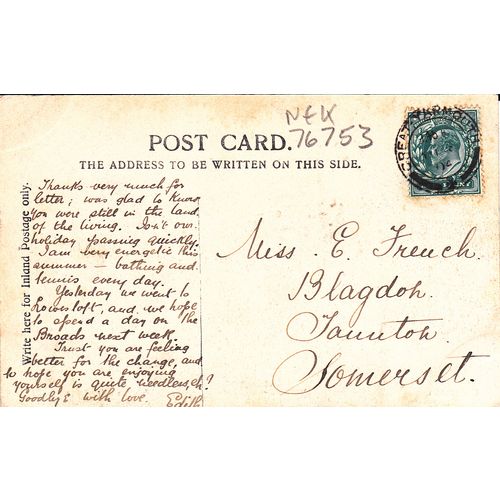 NEW
76753
GREAT YARMOUTH
POST CARD.
THE ADDRESS TO BE WRITTEN ON THIS SIDE.
Write here for Inland Postage only.
Thanks very much for
letter; was glad to know
you were still in the land
of the living. Isn't our
holiday passing quickly.
I am very energetic this
summer — bathing and
tennis every day.
Yesterday we went to
Lowestoft, and we hope
to spend a day on the
Broads next week.
Trust you are feeling
better for the change, and
to hope you are enjoying
yourself is quite needless, eh?
Goodbye with love. Edith
Miss E. French.
Blagdon,
Taunton,
Somerset.